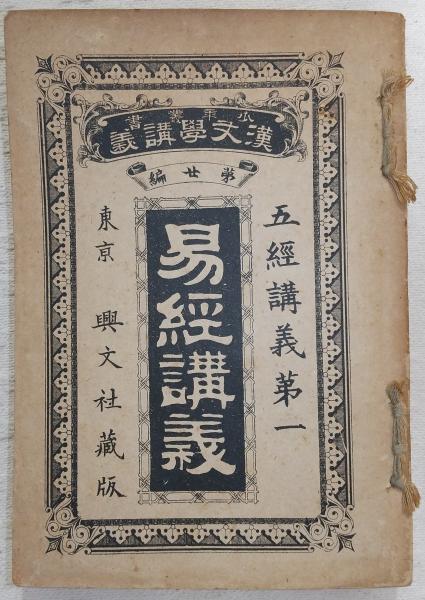 少年叢書
漢文學講義
第廿編
五經講義第一
易經講義
東京 興文社藏版